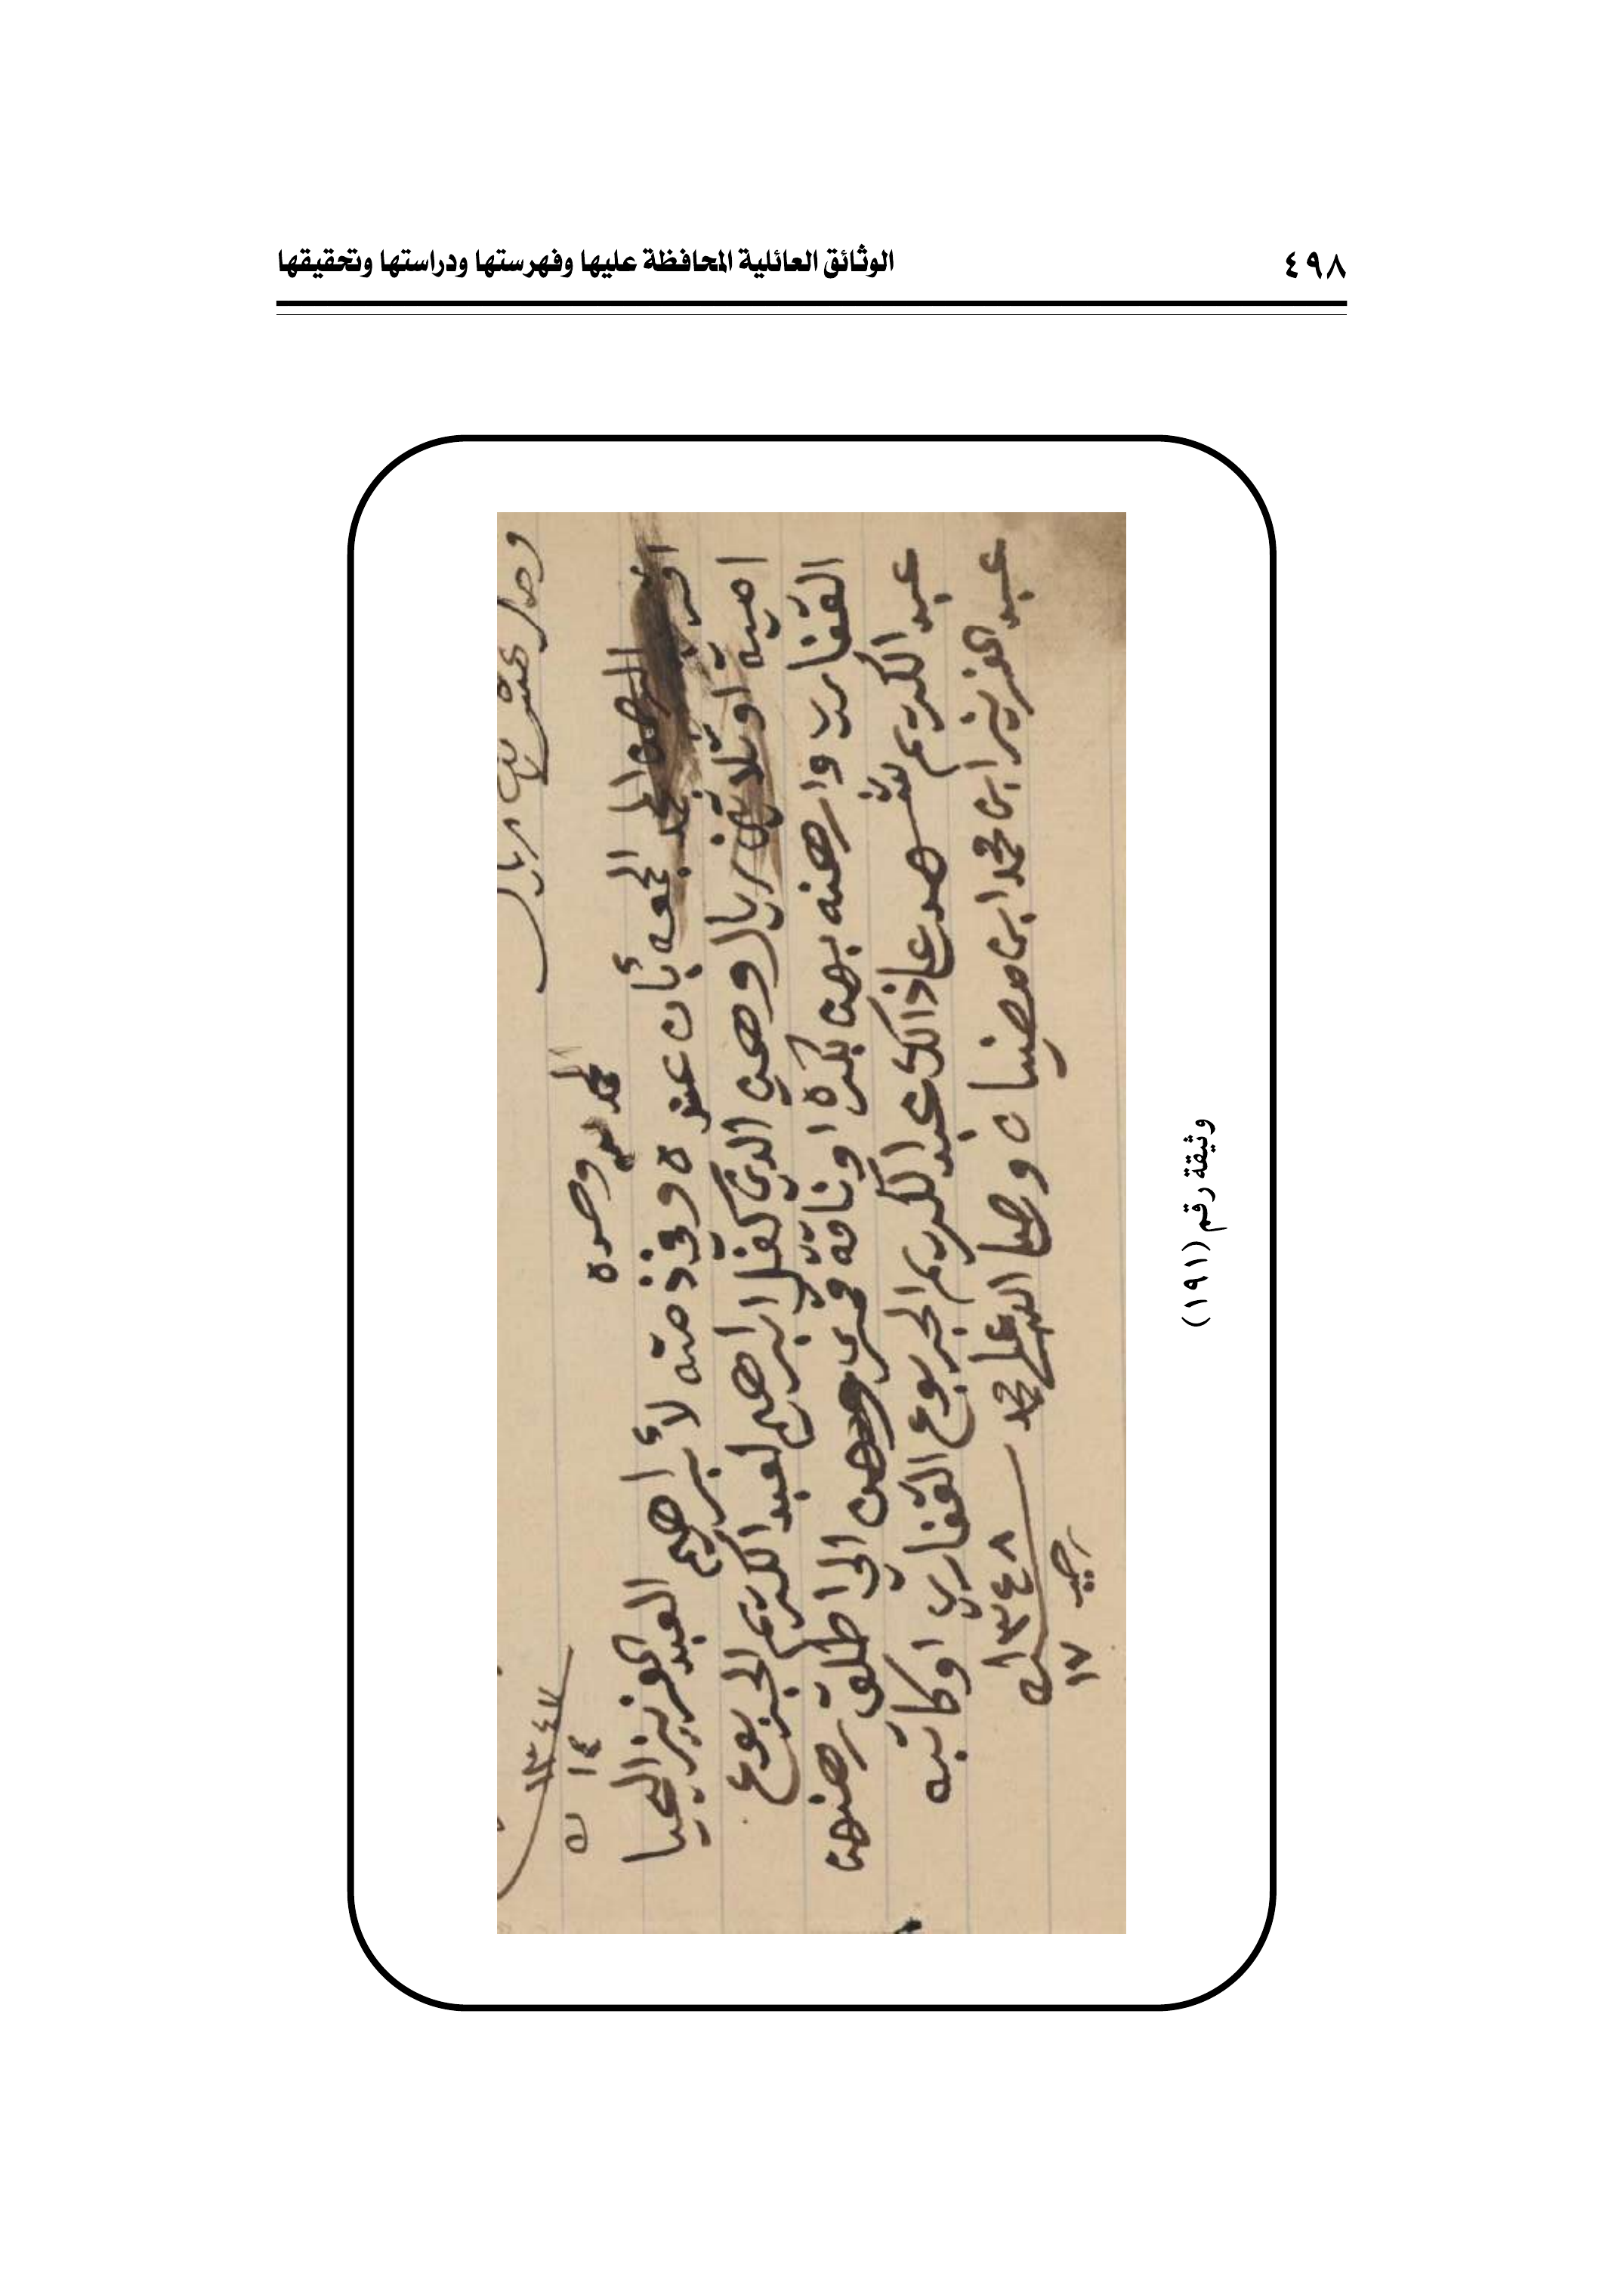 ٤٩٨
الوثائق العائلية المحافظة عليها وفهرستها ودراستها وتحقيقها
وصل عشرين ريال
١٣٤٧
الحمد لله وحده
اقر الحمد الجمعه بأن عنده وفي ذمته لأبراهيم العبد العزيز اليحيا
امية او ثلاثين ريال وهي الذي كفل ابراهيم لعبدالكريم الجربوع
القفاري وارهنه بهن بكره او ناقة وهن الى اطلق رهنهن
عبد الكريم شهد علي ذالك عبد الكريم الجربوع القفاري اوكاتبه
عبد العزيز ابن محمد ابن وصلى الله على محمد ١٣٤٨
١٧
وثيقة رقم (١٩١)